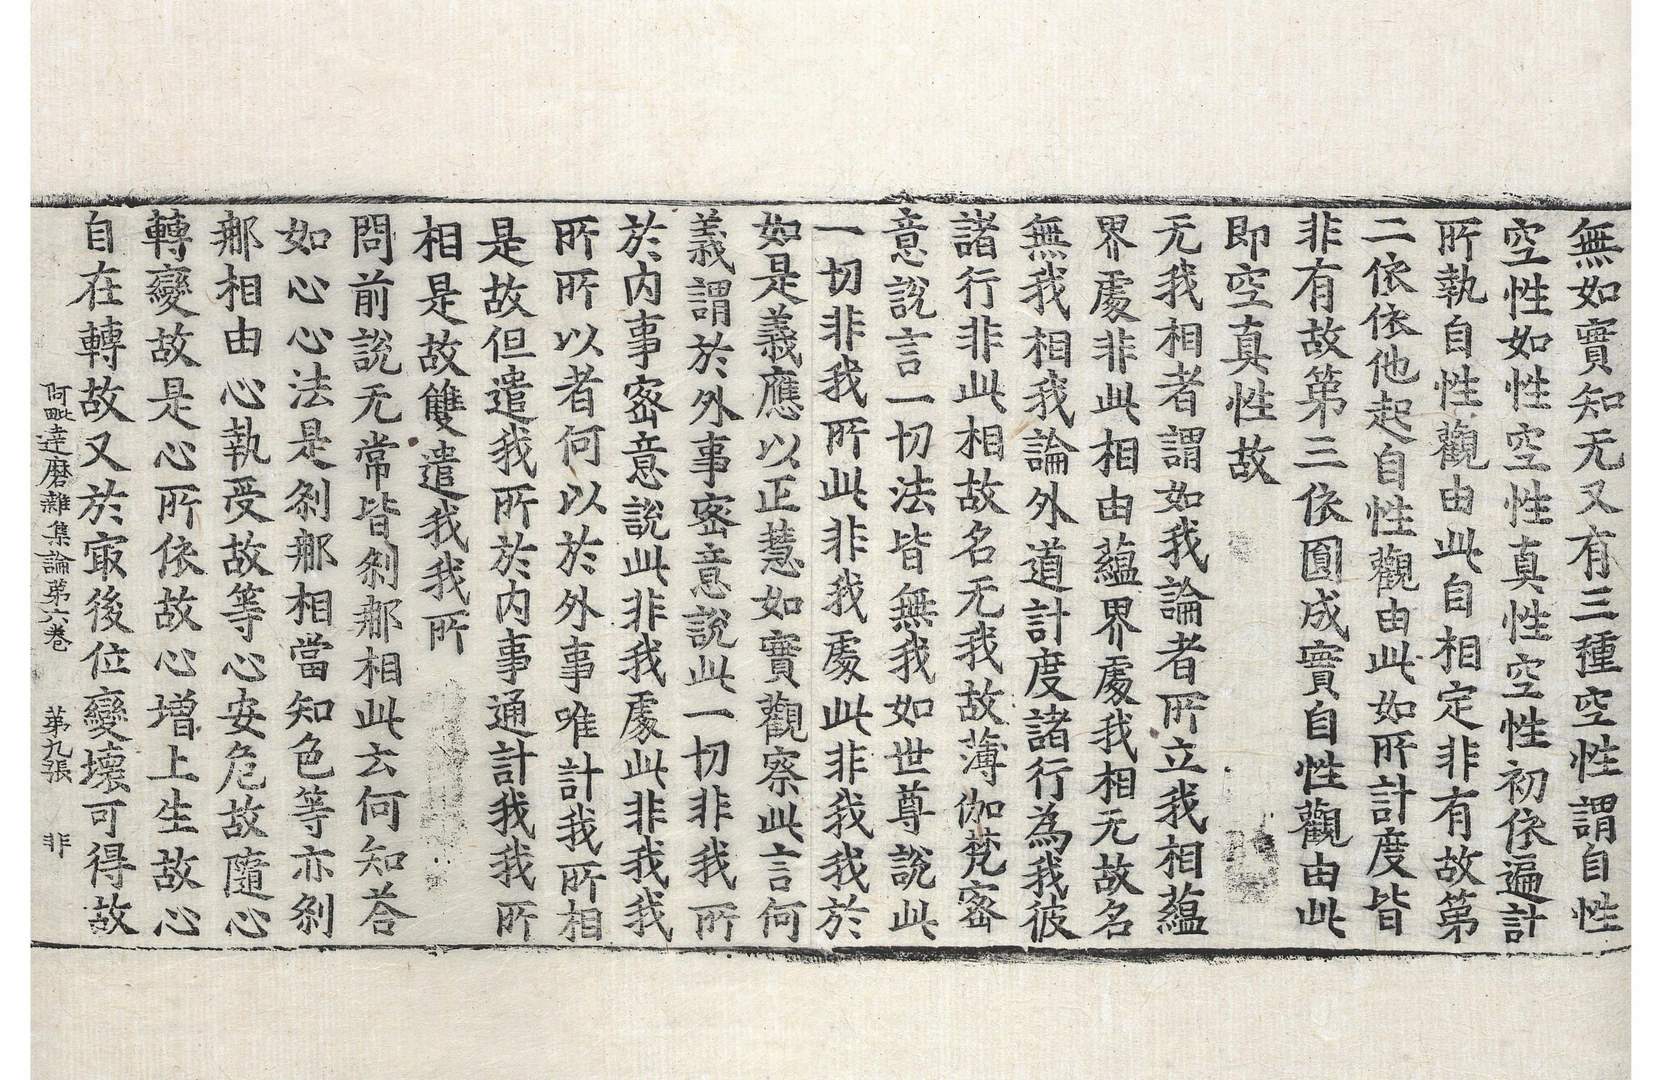 無如實知无又有三種空性謂自性
空性如性空性真性空性初依遍計
所執自性觀由此自相定非有故第
二依依他起自性觀由此如所計度皆
非有故第三依圓成實自性觀由此
即空真性故
无我相者謂如我論者所立我相蘊
界處非此相由蘊界處我相无故名
無我相我論外道計度諸行為我彼
諸行非此相故名无我故薄伽梵密
意說言一切法皆無我如世尊說此
一切非我所此非我處此非我我於
如是義應以正慧如實觀察此言何
義謂於外事密意說此一切非我所
於内事密意說此非我處此非我我
所所以者何以於外事唯計我所相
是故但遣我所於内事通計我我所
相是故雙遣我我所
問前說无常皆剎那相此云何知荅
如心心法是剎那相當知色等亦剎
那相由心執受故等心安危故隨心
轉變故是心所依故心增上生故心
自在轉故又於㝡後位變壞可得故
阿毗達磨雜集論第六卷 第九張 非